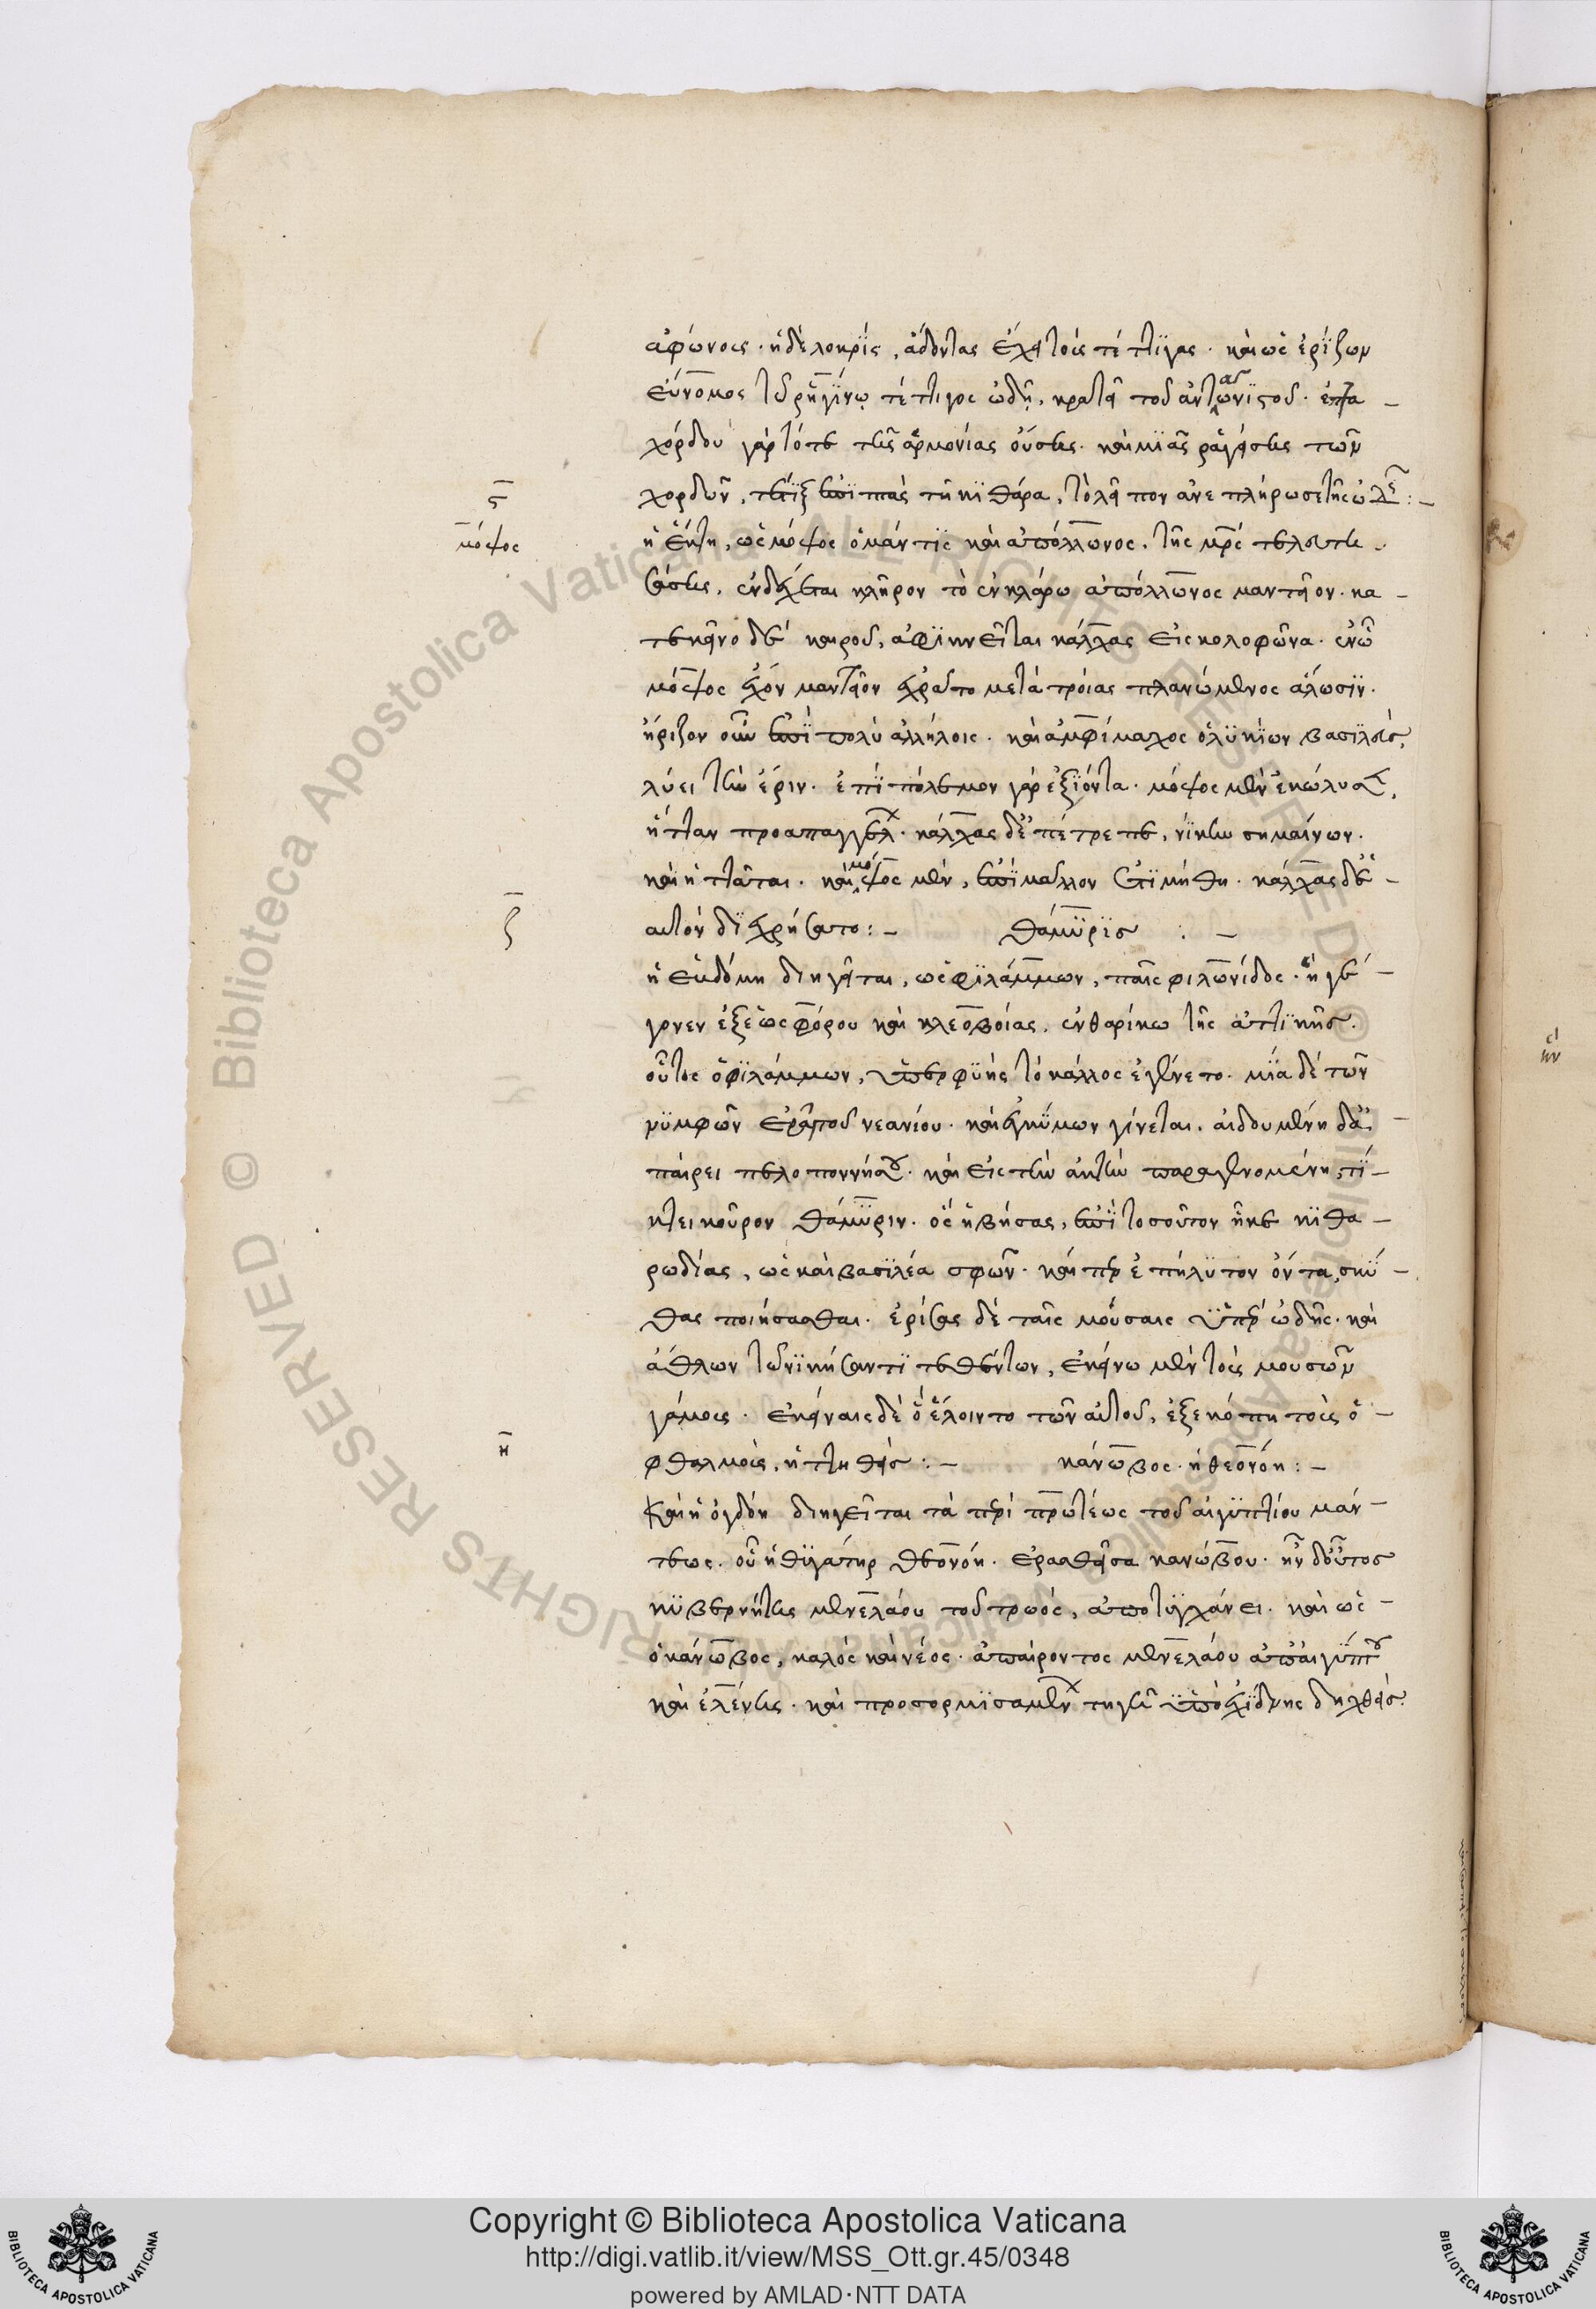 ἀφώνους · ἡ δὲ λοκρὶς, ἄδοντας ἔχει τοὺς τέττιγας · καὶ ὡς ἐρίζων
εὔνομος τῶ ῥηγίνῳ τέττιγος ὠδῇ, κρατεῖ τοῦ ἀνταγωνιστοῦ · ἑπτα
χόρδου γὰρ τότε τῆς ἁρμονίας οὔσης · καὶ μιᾶς ῥαγείσης τῶν
χορδῶν, τέττιξ ἐπιπτὰς τῆ κιθάρα, τὸ λεῖπον ἀνεπλήρωσε τῆς ὠδῆς :-
ς
μόψος
ἡ ἕκτη, ὡς μόψος ὁ μάντις καὶ ἀπόλλωνος, τῆς μητρὸς τελευτη
σάσης, ἐνδέχεται κλῆρον τὸ ἐν κλάρω ἀπόλλωνος μαντεῖον · κα
τ' ἐκεῖνο δὲ καιροῦ, ἀφικνεῖται κάλχας εἰς κολοφῶνα · ἐν ὧ
μόψος ἔχον μαντεῖον ἐχρᾶτο μετὰ τροίας πλανώμενος ἅλωσιν ·
ἤριζον οὖν ἐπὶ πολὺ ἀλλήλοις · καὶ ἀμφίμαχος ὁ λυκίων βασιλεὺς,
λύει τὴν ἔριν · ἐπὶ πόλεμον γὰρ ἐξιόντα · μόψος μὲν ἐκώλυσε,
ἧτταν προαπαγγέλλων · κάλχας δ' ἐπέτρεπε, νίκην σημαίνων ·
καὶ ἡττᾶται · καὶ μόψος μὲν, ἐπὶ μᾶλλον ἐτιμήθη · κάλχας δὲ
ζ
αὑτὸν διεχρήσατο :- θάμυρις :-
ἡ ἑβδόμη διηγεῖται, ὡς φιλάμμων, παῖς φιλωνίδος · ἣ γέ
γονεν ἐξ ἑωσφόρου καὶ κλεοβοίας, ἐν θορίκω τῆς ἀττικῆς ·
οὗτος ὁ φιλάμμων, ὑπερφυὴς τὸ κάλλος ἐγένετο · μία δὲ τῶν
νυμφῶν ἐρᾷ τοῦ νεανίου · καὶ ἐγκύμων γίνεται · αἰδουμένη δ' ἀ
παίρει πελοποννήσου · καὶ εἰς τὴν ἀκτὴν παραγενομένη, τί
κτει κοῦρον θάμυριν · ὃς ἡβήσας, ἐπὶ τοσοῦτον ἧκε κιθα
ρωδίας, ὡς καὶ βασιλέα σφῶν · καίπερ ἐπήλυτον ὄντα, σκύ
θας ποιήσασθαι · ἐρίσας δὲ ταῖς μούσαις ὑπὲρ ὠδῆς · καὶ
ἄθλων τῶ νικήσαντι τεθέντων, ἐκείνω μὲν τοὺς μουσῶν
γάμους · ἐκείναις δὲ ὃ ἕλοιντο τῶν αὐτοῦ, ἐξεκόπη τοὺς ὀ
η
φθαλμοὺς, ἡττηθείς :- κάνωβος · ἡ θεονόη :-
Καὶ ἡ ὀγδόη διηγεῖται τὰ περὶ πρωτέως τοῦ αἰγυπτίου μάν
τεως · οὗ ἡ θυγάτηρ θεονόη · ἐρασθεῖσα κανώβου · ἦν δ' οὗτος
κυβερνήτης μενελάου τοῦ τρωὸς, ἀποτυγχάνει · καὶ ὡς
ὁ κάνωβος, καλὸς καὶ νέος · ἀπαίροντος μενελάου ἀπ' αἰγύπτου
καὶ ἑλένης · καὶ προσορμισαμένων τῆ γῆ ὑπὸ ἐχίδνης δηχθεὶς
Copyright © Biblioteca Apostolica Vaticana
http://digi.vatlib.it/view/MSS_Ott.gr.45/0348
powered by AMLAD·NTT DATA